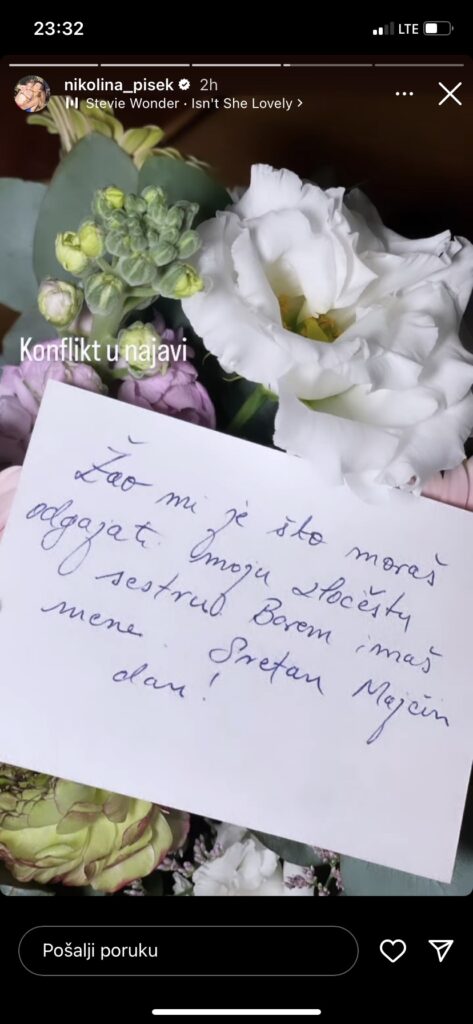 23:32
LTE
nikolina_pisek 2h
Stevie Wonder · Isn't She Lovely >
Konflikt u najavi
Žao mi je što moraš
odgajati moju zločestu
sestru. Barem imaš
mene. Sretan Majčin
dan!
Pošalji poruku